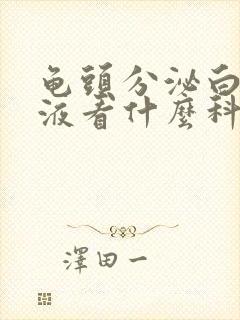 龟頭分泌白
液看什麼科
澤田一